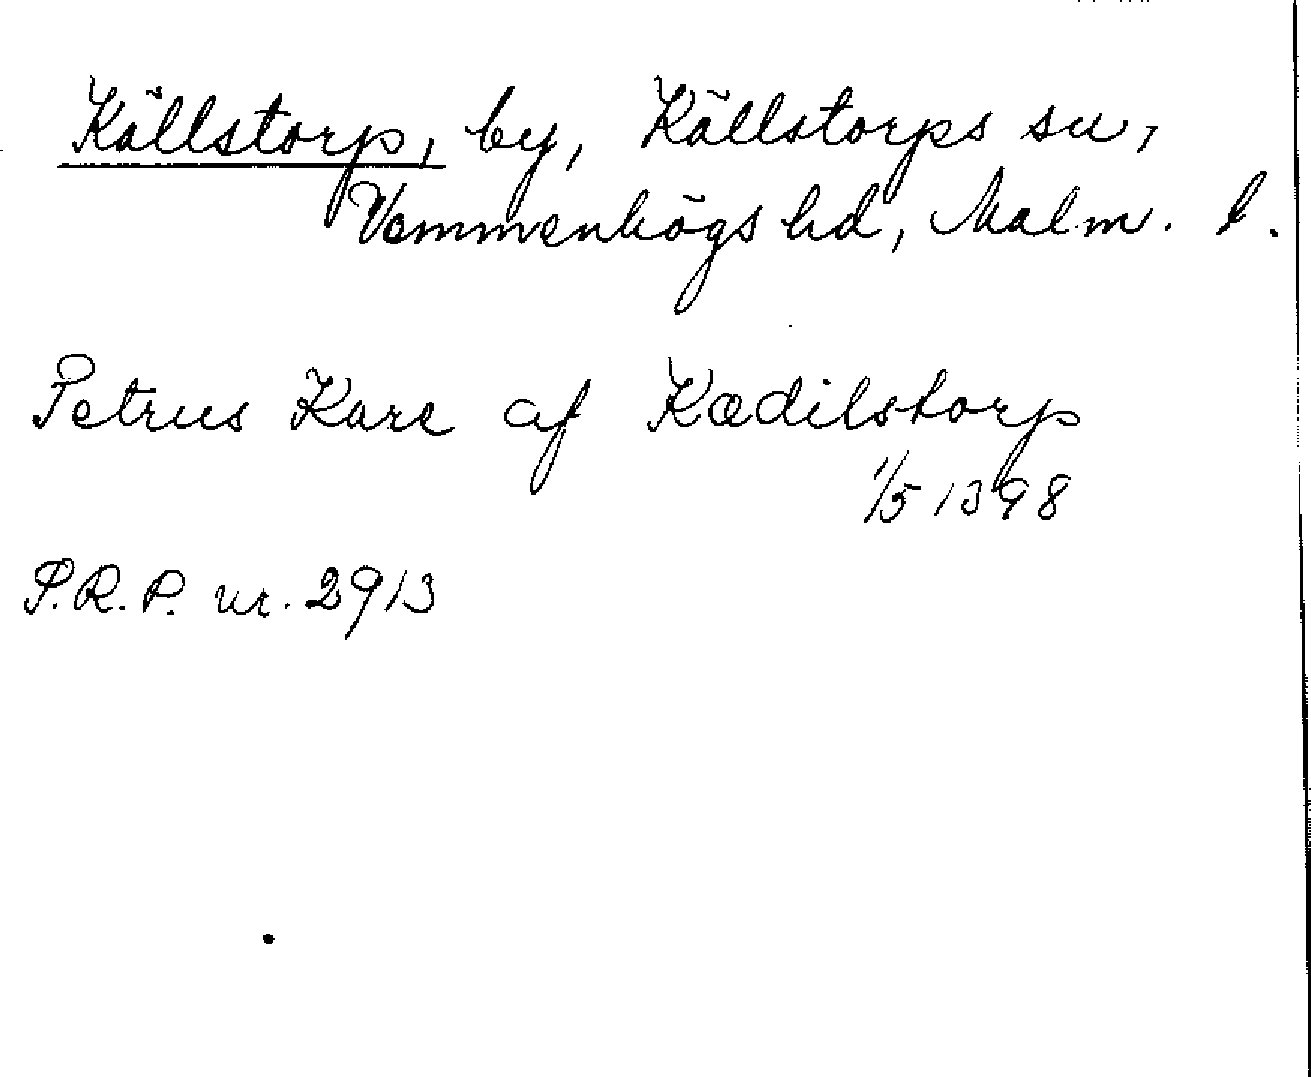 Källstorp, by, Källstorps sn,
Vemmenhögs hd, Malm. l.
Petrus Kare af Kædilstorp
1/5 1398
S.R.P. nr. 2913